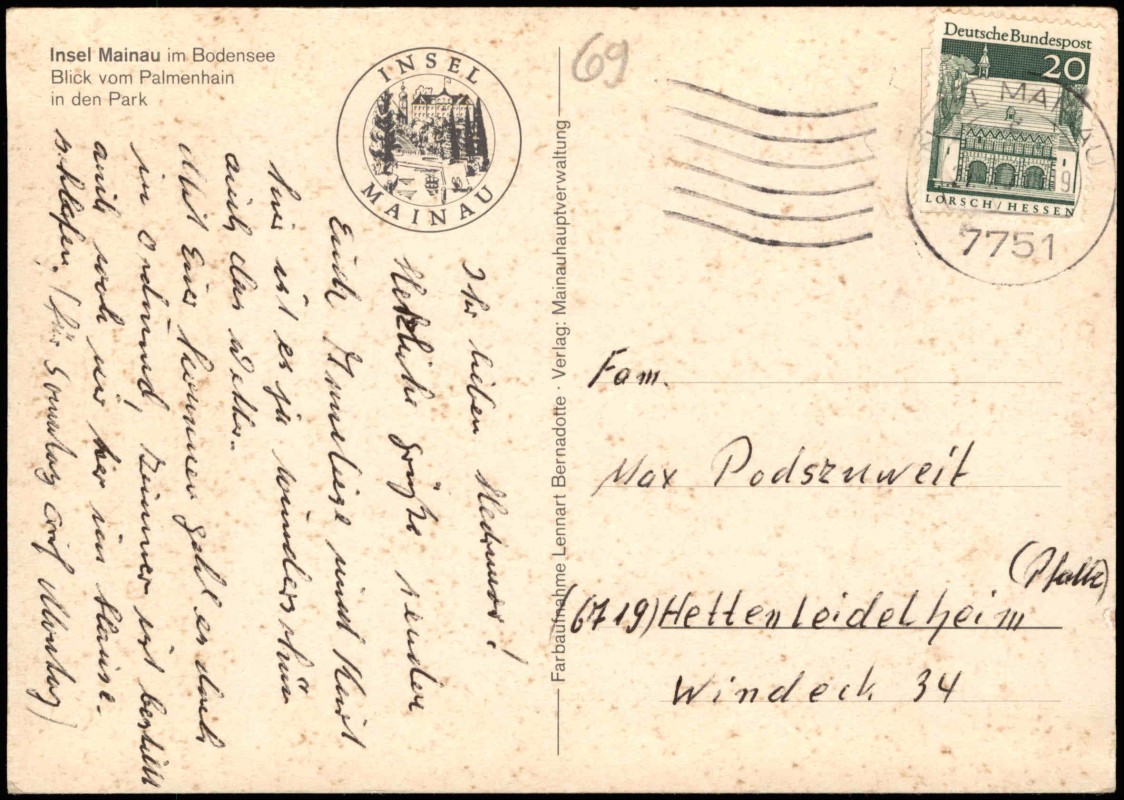 Insel Mainau im Bodensee
Blick vom Palmenhain
in den Park
INSEL
MAINAU
69
Deutsche Bundespost
20
LORSCH/HESSEN
INSEL MAINAU
7751
Farbaufnahme Lennart Bernadotte · Verlag: Mainauhauptverwaltung
Ihr lieben
Herzliche Grüße senden
Euch Anneliese und Kind
hier ist es ja wunderschön
auch das Wetter.
Mit Eurem Kommen geht es doch
in Ordnung, Zimmer ist bestellt
weil wir hier im Hause
schlafen. (für Sonntag auf Montag)
Fam.
Max Podszuweit
(Pfalz)
(6719) Hettenleidelheim
Windeck 34